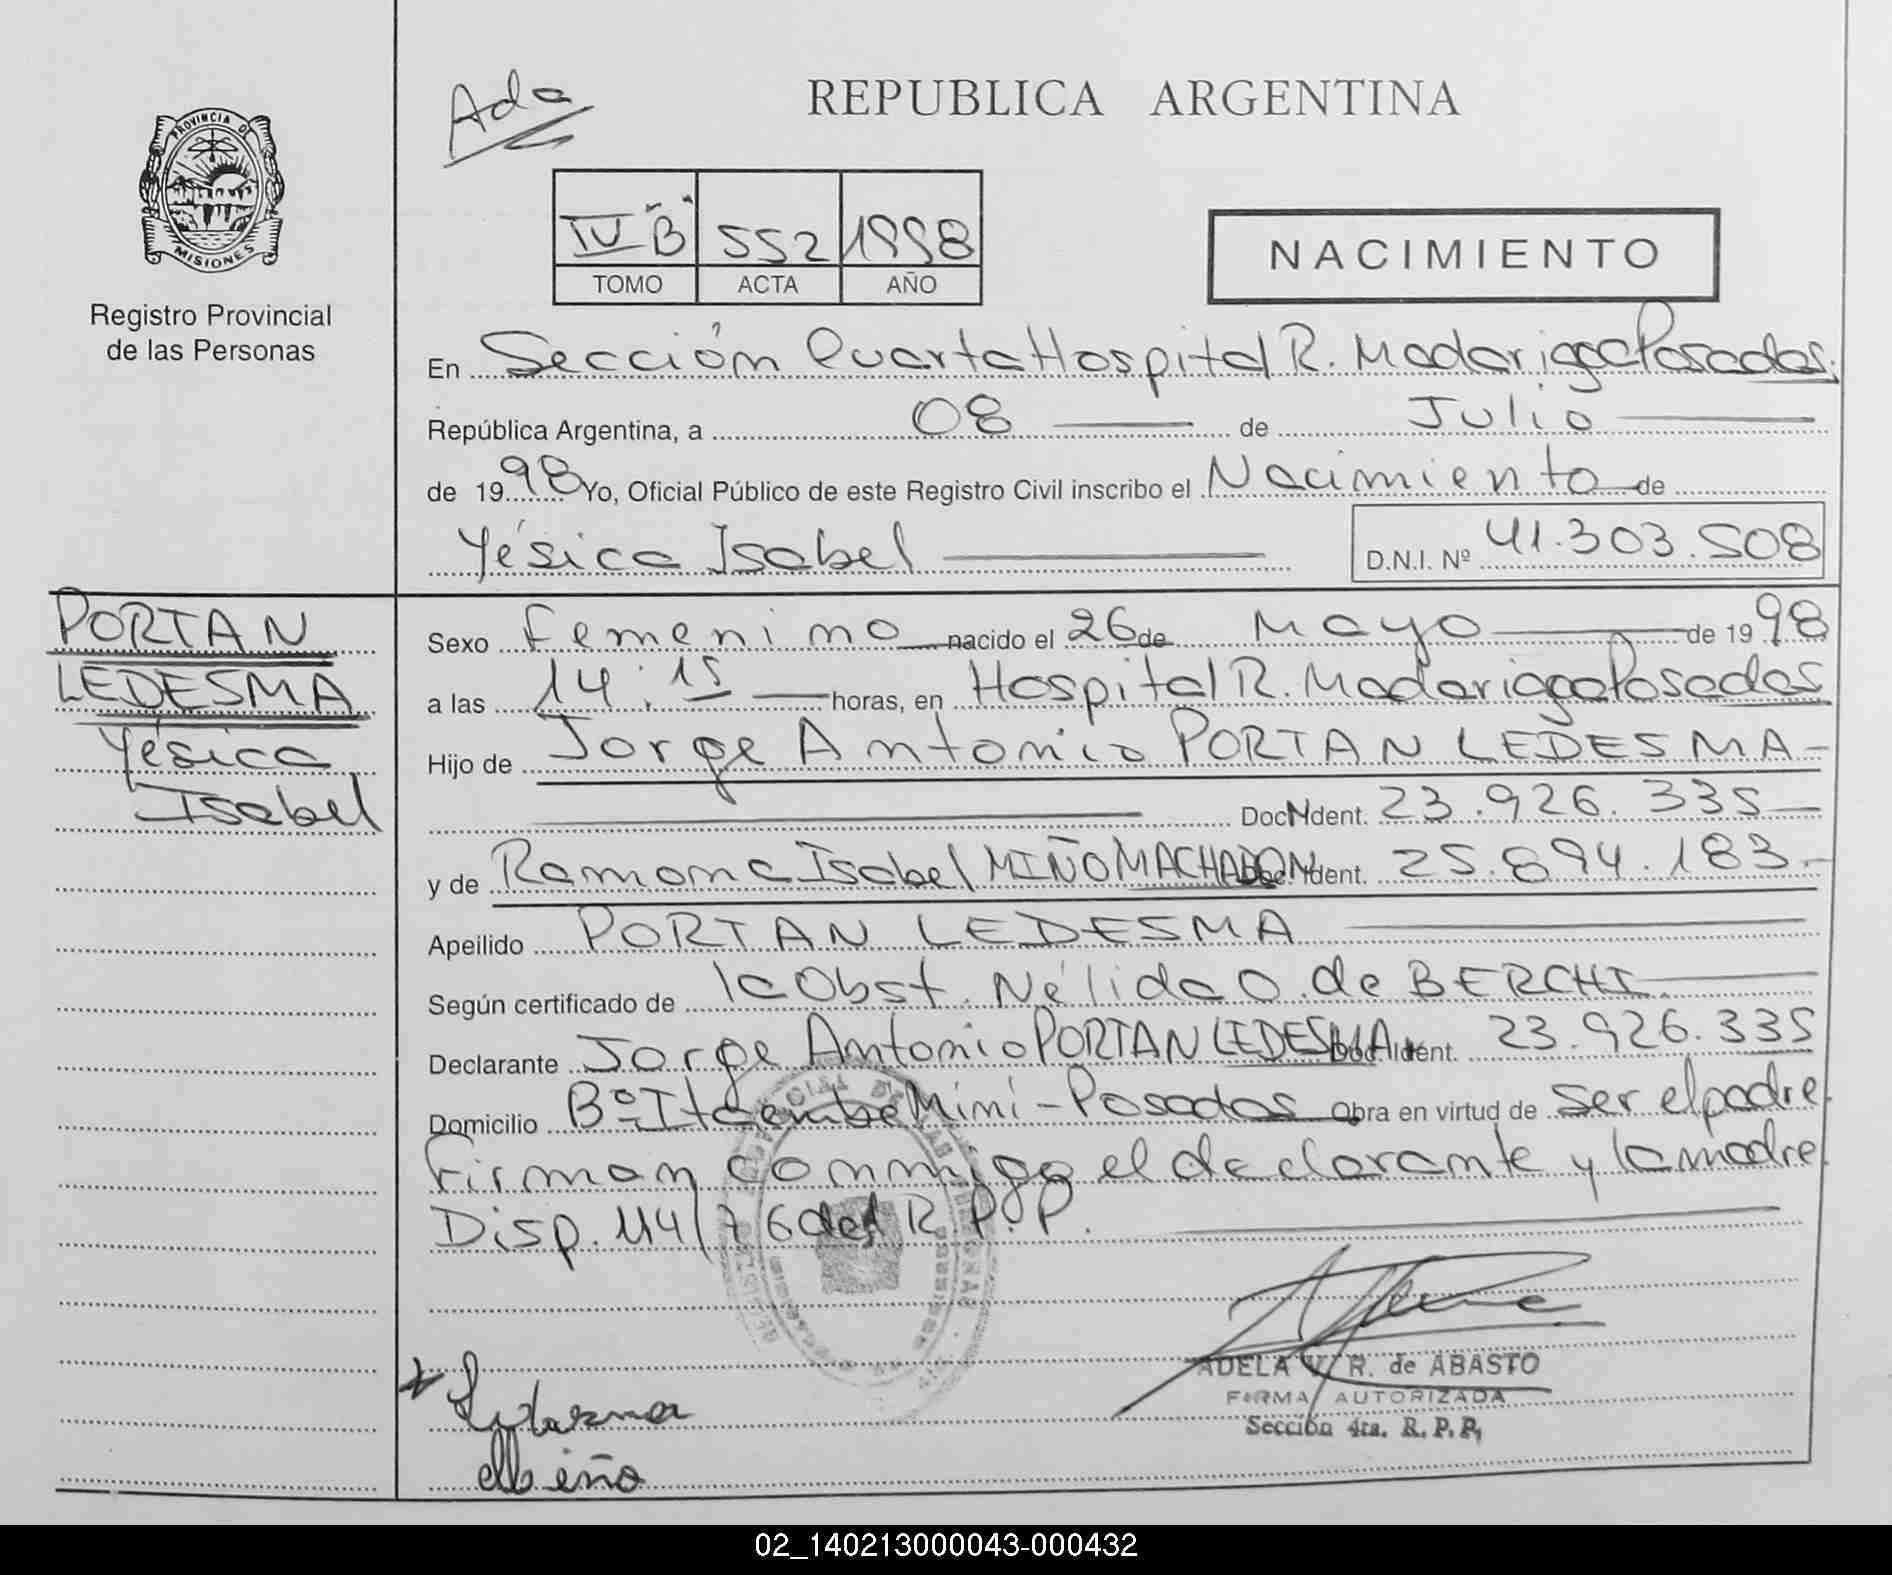 Ada
REPUBLICA ARGENTINA
PROVINCIA DE
MISIONES
Registro Provincial
de las Personas
IV "B" 552 1998
TOMO ACTA AÑO
NACIMIENTO
En Sección Cuarta Hospital R. Madariaga Posadas.
República Argentina, a 08 de Julio
de 1998 Yo, Oficial Público de este Registro Civil inscribo el Nacimiento de
Yésica Isabel D.N.I. Nº 41.303.508
PORTAN
LEDESMA
Yésica
Isabel
Sexo Femenino nacido el 26 de Mayo de 1998
a las 14:15 horas, en Hospital R. Madariaga Posadas
Hijo de Jorge Antonio PORTAN LEDESMA
Doc. N Ident. 23.926.335
y de Ramona Isabel MIÑO MACHADO N Ident. 25.894.183
Apellido PORTAN LEDESMA
Según certificado de la Obst. Nélida O. de BERCHI
Declarante Jorge Antonio PORTAN LEDESMA Doc. Ident. 23.926.335
Domicilio Bº Itaembe Mini - Posadas Obra en virtud de ser el padre.
Firman conmigo el declarante y la madre.
Disp. 114/76 del R.P.P.
ADELA V. R. de ABASTO
FIRMA AUTORIZADA
Sección 4ta. R. P. P.
Miño
02_140213000043-000432